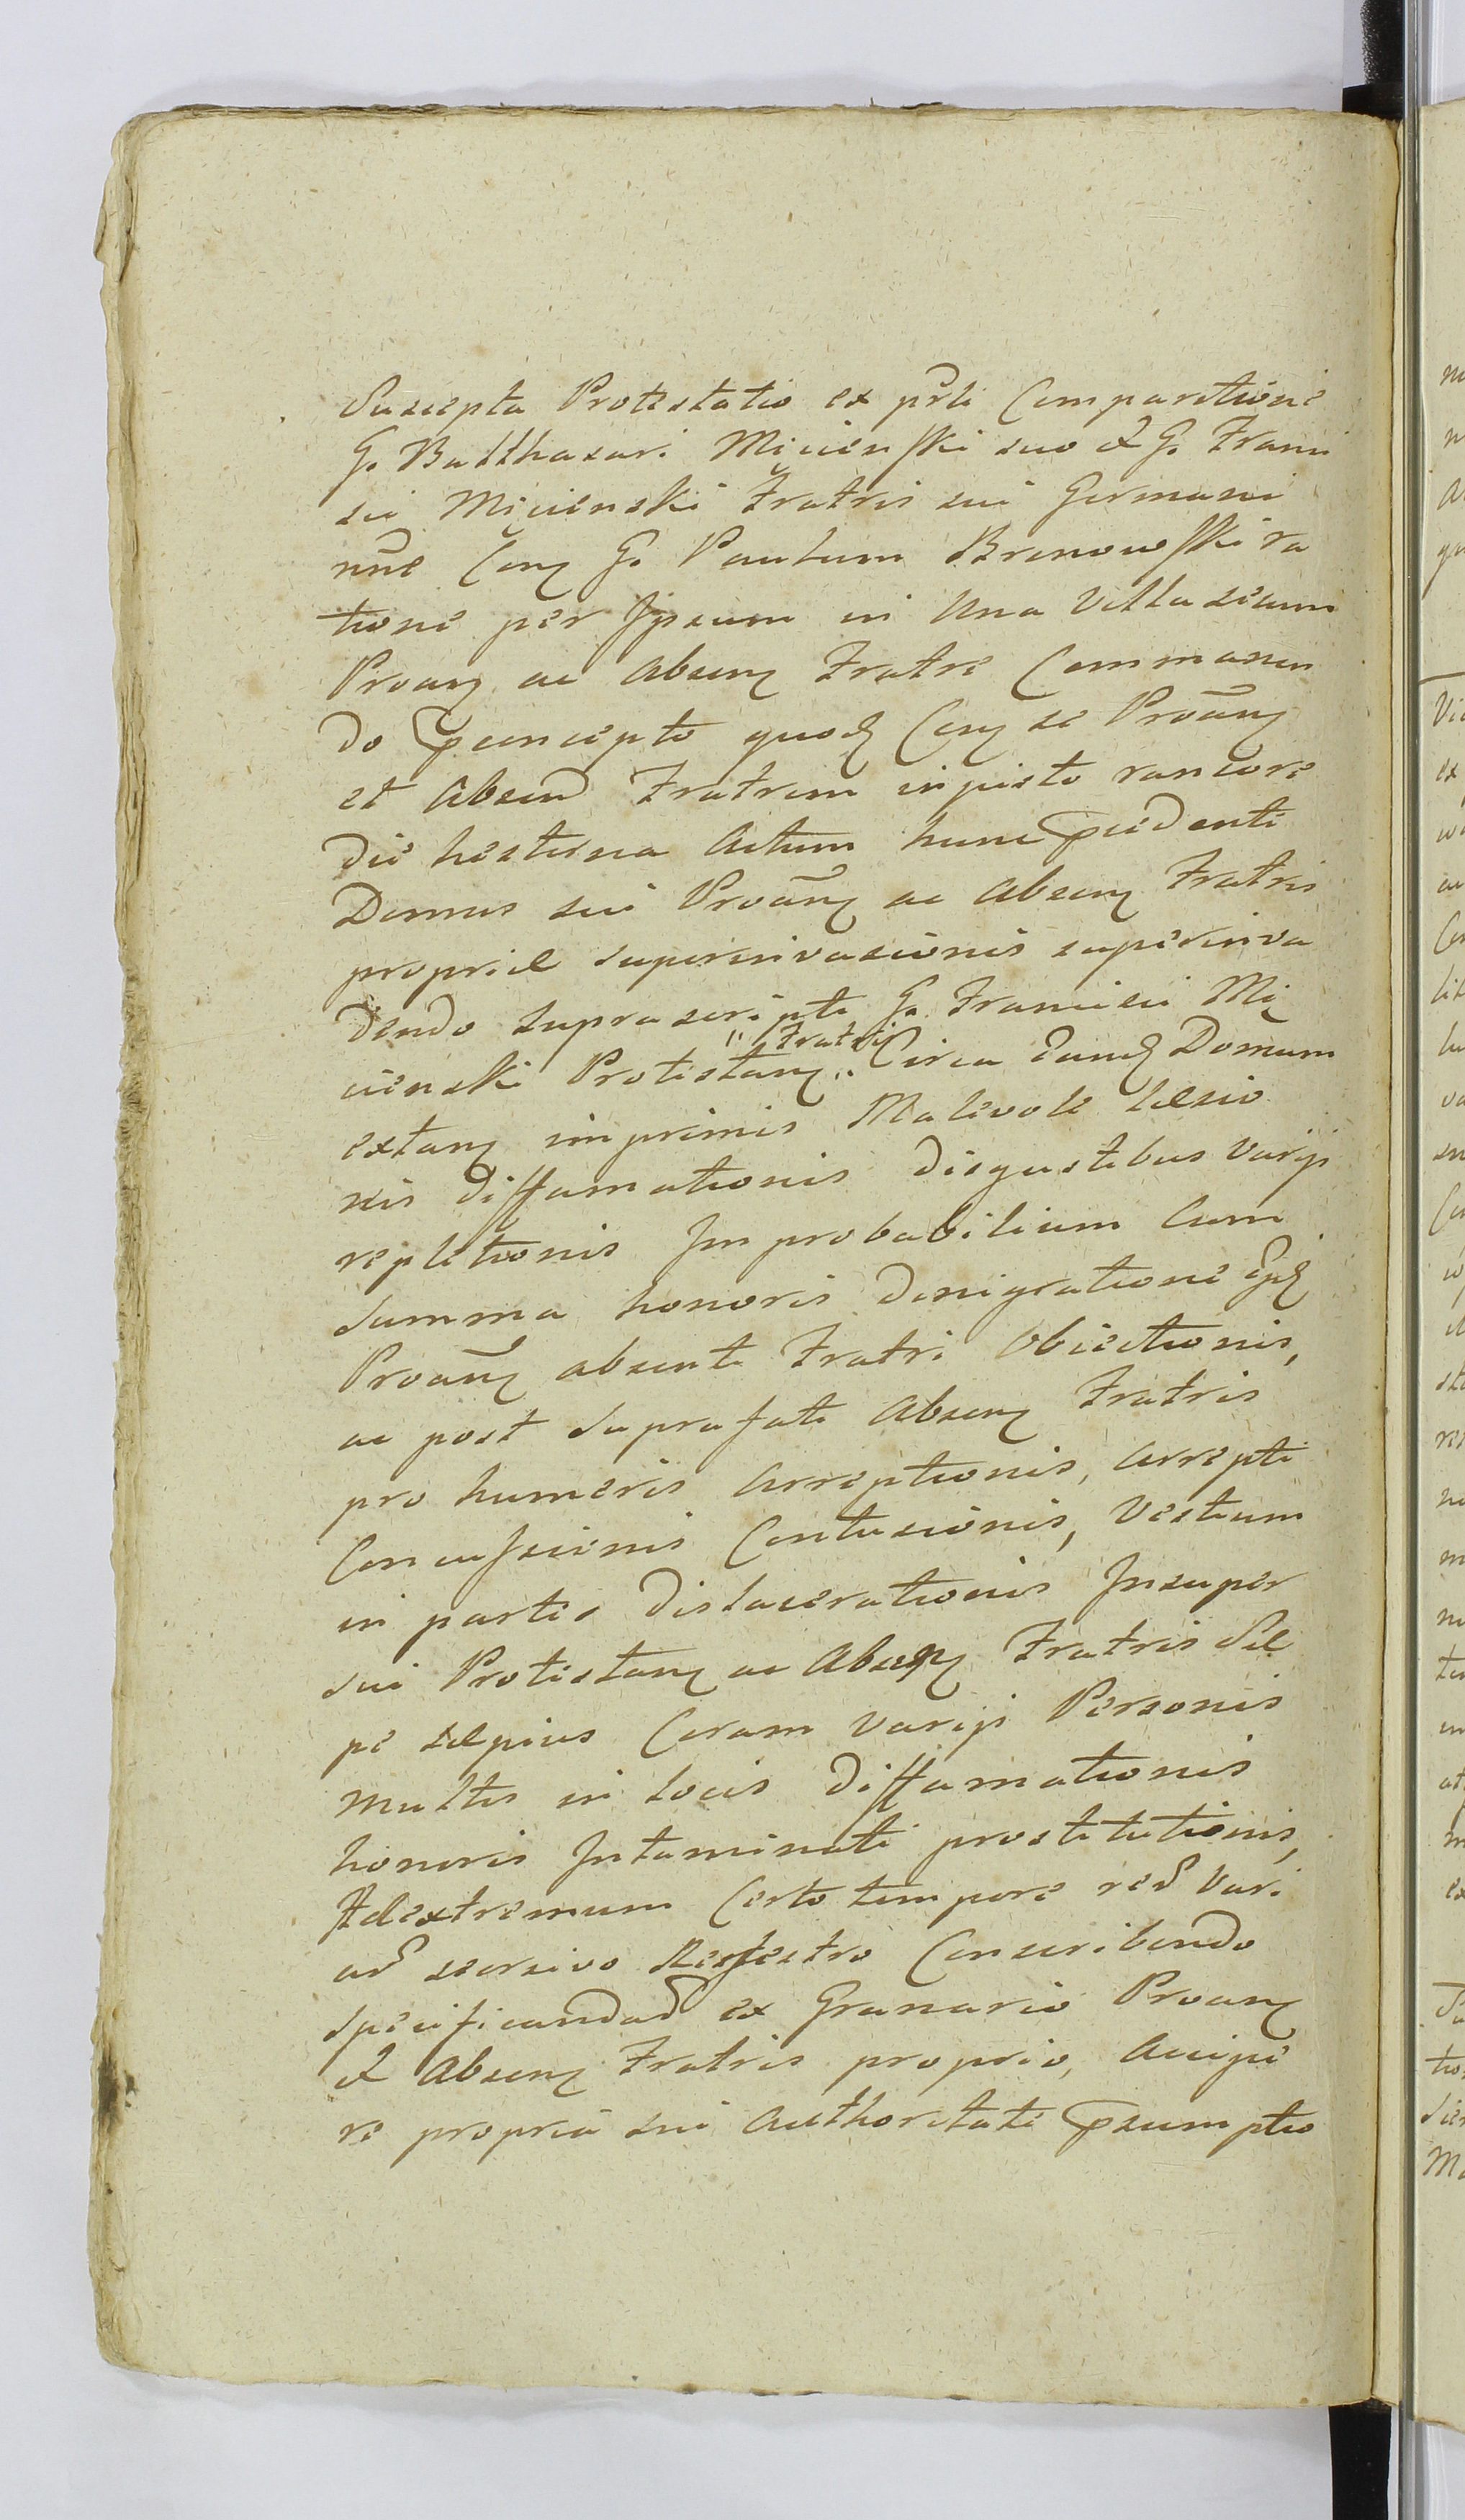 Suscepta Protestatio ex prli Comparitione
G. Balthasari Micienski suo et G. Franci
sci Micienski Fratris sui Germani
nne Cong G. Paulum Bronowski ra
tione per Ipsum in una Villa secum
Proang ac Absenq Fratre Commanen
do pconcepto quod Cong se Proang
et Absend Fratrem injusto rancore
die hesterna Actum hunc pcedenti
Domus sui Proang ac Absenq Fratris
propriæ superinvasionis superinva
dendo suprascripti G. Francisci Mi
cienski Protestang " Fratri " Circa Eand Domum
extang imprimis Malevole læsio
nis diffamationis disgustibus varys
repletionis Improbabilium Cum
summa honoris denigratione Ejd
Proang absenti Fratri Obiectionis,
ac post suprafati Absenq Fratris
pro humeris Arreptionis, arrepti
Concussionis Contusionis, Vestium
in partes dislacerationis Insuper
sui Protestang ac Absenq Fratris Sæ
pe sæpius Coram varys Personis
multis in locis diffamationis
honoris Intaminati prostitutionis,
Adextremum Certo tempore red vari
ad seorsivo Regestro Conscribendo
specificandad ex Granario Proang
et Absenq Fratris proprio, Accipe
re propria sui Authoritate psumptio